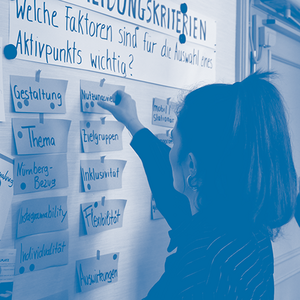 IDUNGSKRITERIEN
Welche Faktoren sind für die Auswahl eines
Aktivpunkts wichtig?
Gestaltung
Thema
Zielgruppen
Nürnberg-
Bezug
Inklusivität
Instagramability
Flexibilität
Individualität
Auswirkungen